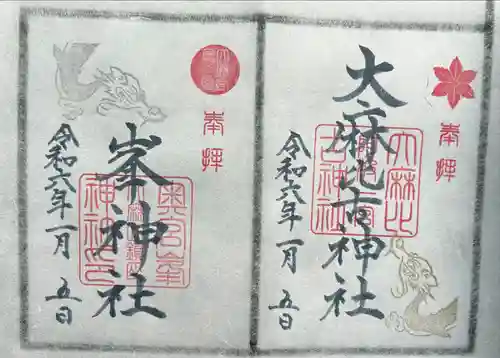 奉拝
大麻比古神社
大麻比古神社
令和六年一月五日
奉拝
峯神社
奥宮峯神社印
令和六年一月五日